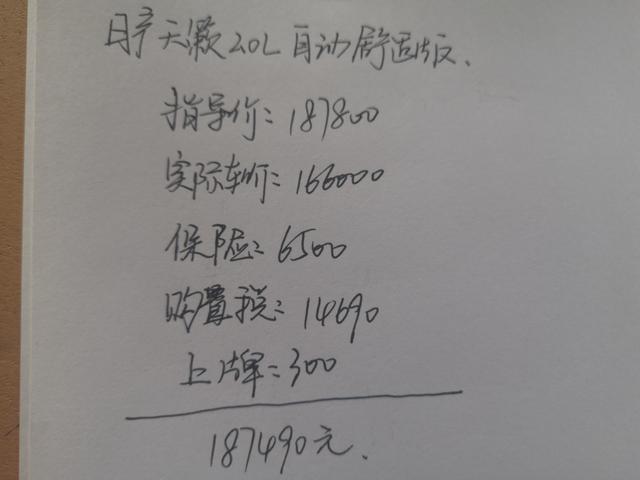 日产天籁2.0L自动舒适版.
指导价:187800
实际车价:166000
保险:6500
购置税:14690
上牌:300
187490元.